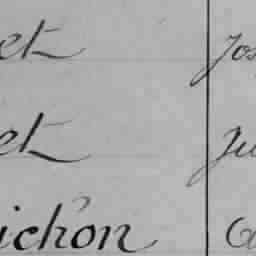 et Jos
et Ju
ichon